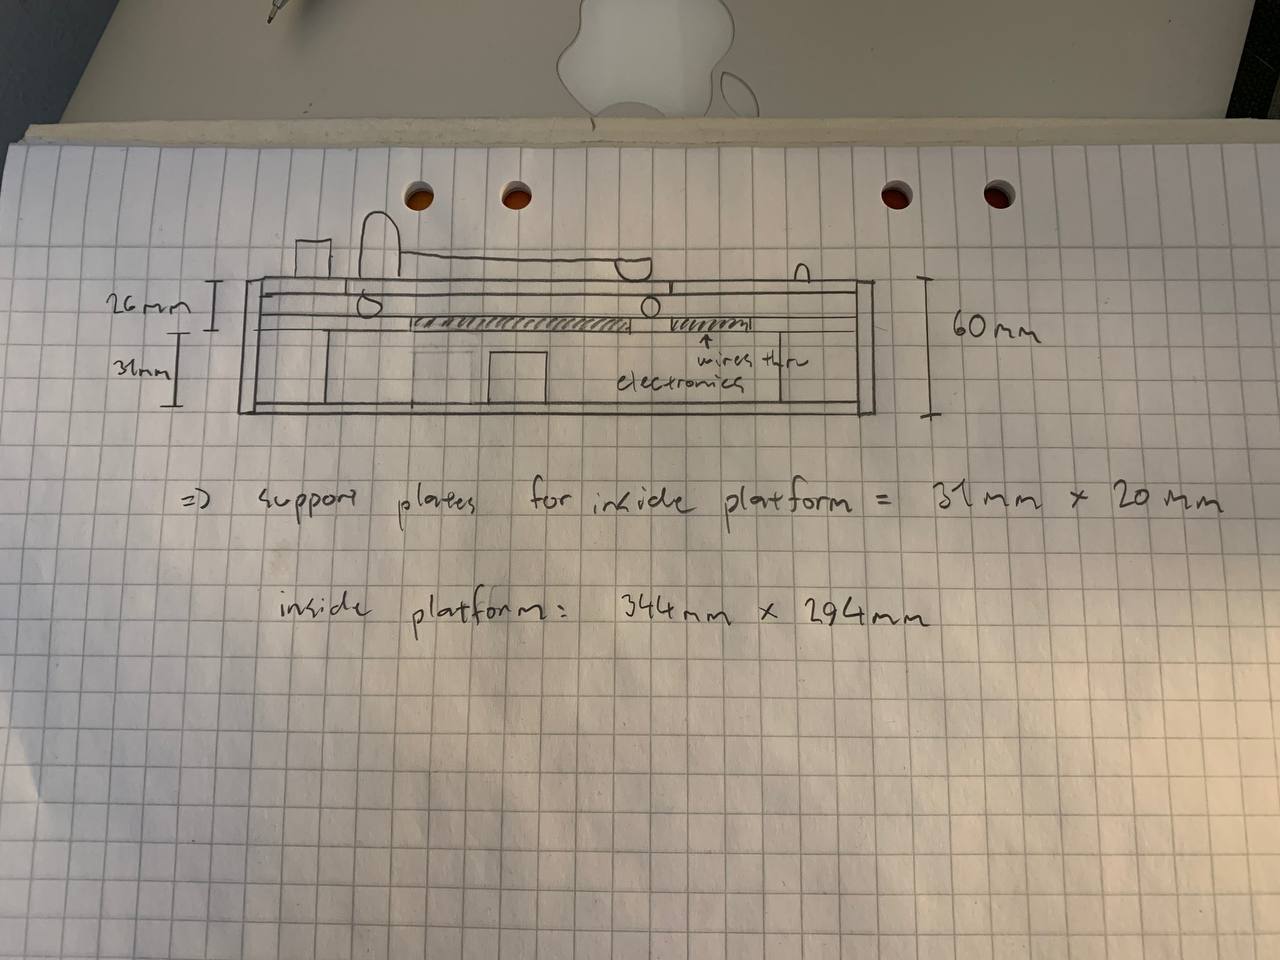 26mm
60mm
31mm
wires thru
electronics
=> support plates for inside platform = 31mm × 20mm
inside platform: 344mm × 294mm